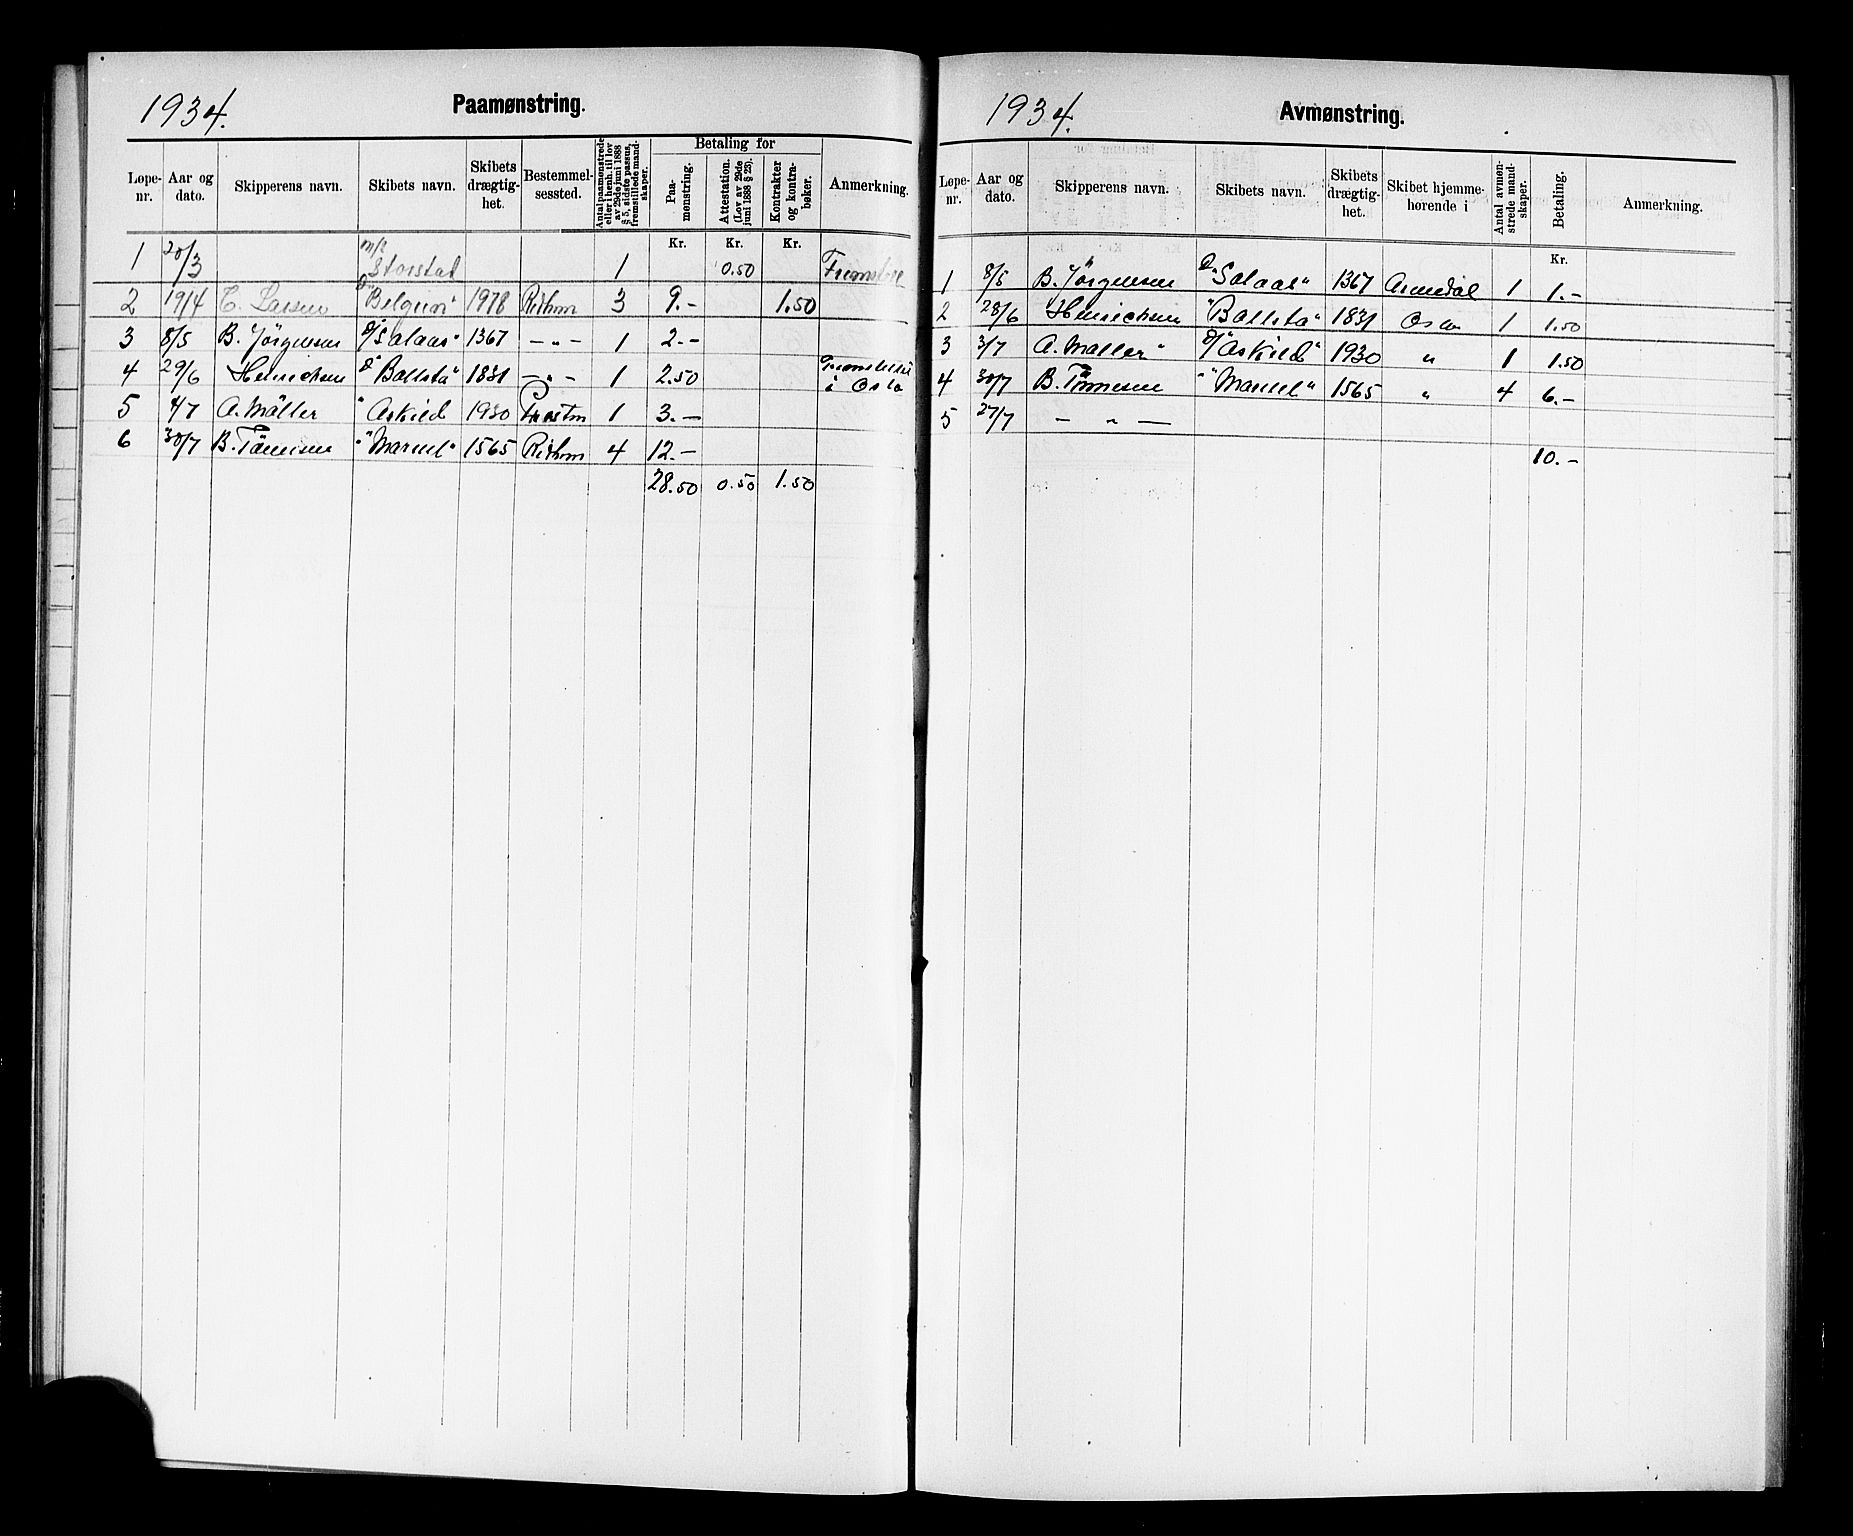 1934. Paamønstring.
Løpe-nr. Aar og dato. Skipperens navn. Skibets navn. Skibets drægtig-het. Bestemmel-sessted. Antal paamønstrede eller i henh. til lov av 29de juni 1888 § 5, sidste passus, fremstillede mand-skaper. Betaling for Paa-mønstring. Attestation. (Lov av 29de juni 1888 § 23). Kontrakter og kontra-bøker. Anmerkning.
Kr. Kr. Kr.
1 20/3 Storstad 1 0.50
2 19/4 Larsen "Belgien" 1978 3 9.- 1.50
3 8/5 B. Jörgensen "Salaas" 1367 — " — 1 2.-
4 29/6 Henrichsen "Ballsta" 1831 — " — 1 2.50 i Oslo
5 4/7 A. Möller " Askild 1930 1 3.—
6 30/7 B. Tönnesen " "Marcel" 1565 4 12.—
28.50 0.50 1.50
1934. Avmønstring.
Løpe-nr. Aar og dato. Skipperens navn. Skibets navn. Skibets drægtig-het. Skibet hjemme-hørende i Antal avmøn-strede mand-skaper. Betaling. Anmerkning.
Kr.
1 8/5 B. Jörgensen "Salaas" 1367 Arendal 1 1.-
2 28/6 Henrichsen "Ballsta" 1831 Oslo 1 1.50
3 3/7 A. Möller "Askild" 1930 " 1 1.50
4 30/7 B. Tönnesen " "Marcel" 1565 " 4 6.-
5 27/7 — " —
10.-